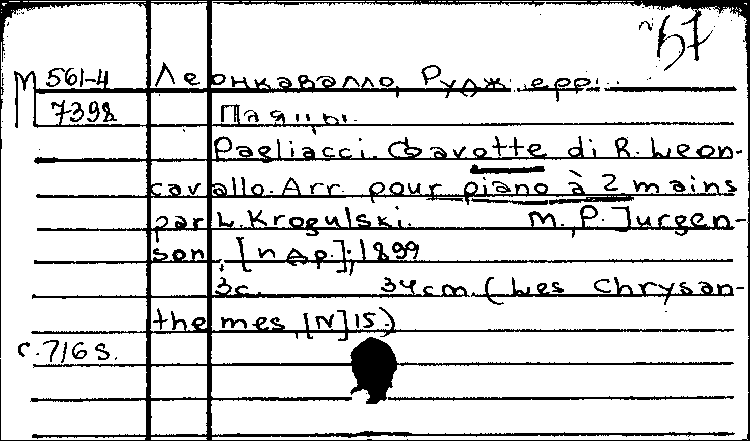 57
М 561-4 Леонкавалло, Рудж ерр
7398 Паяцы.
Pagliacci. Gavotte di R. Leon-
cavallo. Arr. pour piano à 2 mains
par L. Krogulski. M., P. Jurgen-
son, [и др.]; 1899
3с. 34cm. (Les Chrysan-
themes, [N] 15.)
с. 716 s.